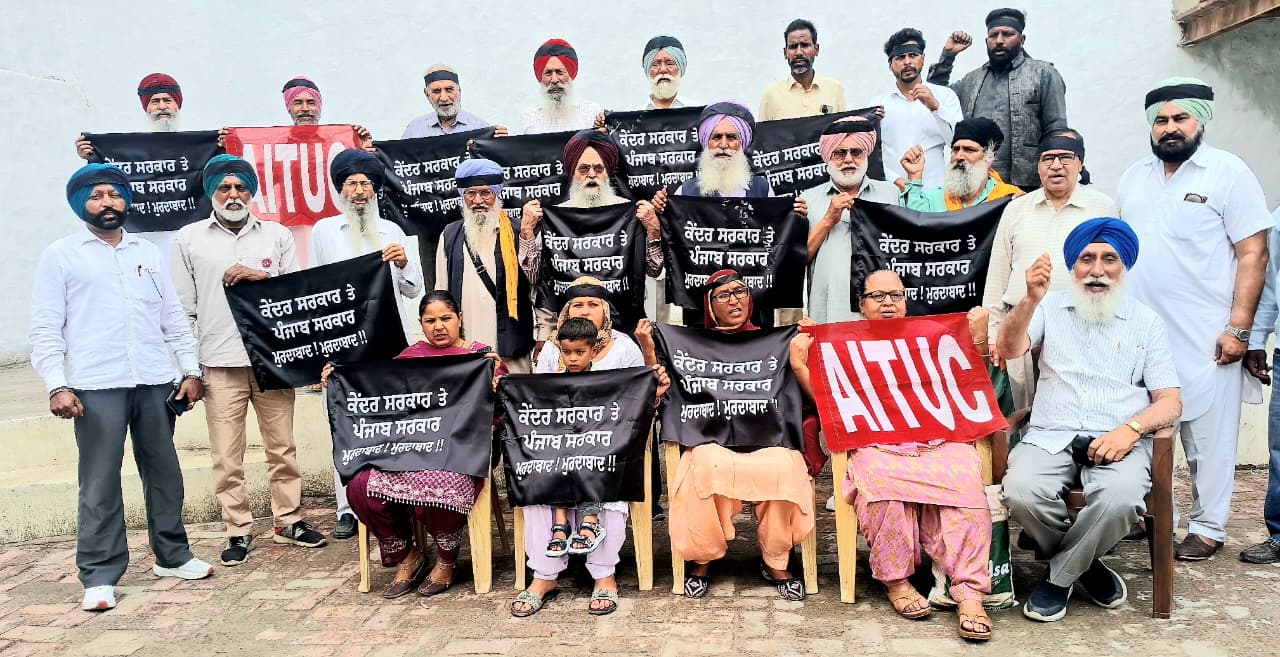 ਕੇਂਦਰ ਸਰਕਾਰ ਤੇ
AITUC
ਕੇਂਦਰ ਸਰਕਾਰ ਤੇ
ਪੰਜਾਬ ਸਰਕਾਰ
ਕੇਂਦਰ ਸਰਕਾਰ ਤੇ
ਪੰਜਾਬ ਸਰਕਾਰ
ਕੇਂਦਰ ਸਰਕਾਰ ਤੇ
ਪੰਜਾਬ ਸਰਕਾਰ
ਮੁਰਦਾਬਾਦ ! ਮੁਰਦਾਬਾਦ !!
ਕੇਂਦਰ ਸਰਕਾਰ ਤੇ
ਪੰਜਾਬ ਸਰਕਾਰ
ਮੁਰਦਾਬਾਦ ! ਮੁਰਦਾਬਾਦ !!
ਕੇਂਦਰ ਸਰਕਾਰ ਤੇ
ਪੰਜਾਬ ਸਰਕਾਰ
ਮੁਰਦਾਬਾਦ ! ਮੁਰਦਾਬਾਦ !!
ਕੇਂਦਰ ਸਰਕਾਰ ਤੇ
ਪੰਜਾਬ ਸਰਕਾਰ
ਮੁਰਦਾਬਾਦ ! ਮੁਰਦਾਬਾਦ !!
ਕੇਂਦਰ ਸਰਕਾਰ ਤੇ
ਪੰਜਾਬ ਸਰਕਾਰ
ਮੁਰਦਾਬਾਦ ! ਮੁਰਦਾਬਾਦ !!
ਕੇਂਦਰ ਸਰਕਾਰ ਤੇ
ਪੰਜਾਬ ਸਰਕਾਰ
ਮੁਰਦਾਬਾਦ ! ਮੁਰਦਾਬਾਦ !!
ਕੇਂਦਰ ਸਰਕਾਰ ਤੇ
ਪੰਜਾਬ ਸਰਕਾਰ
ਮੁਰਦਾਬਾਦ ! ਮੁਰਦਾਬਾਦ !!
AITUC